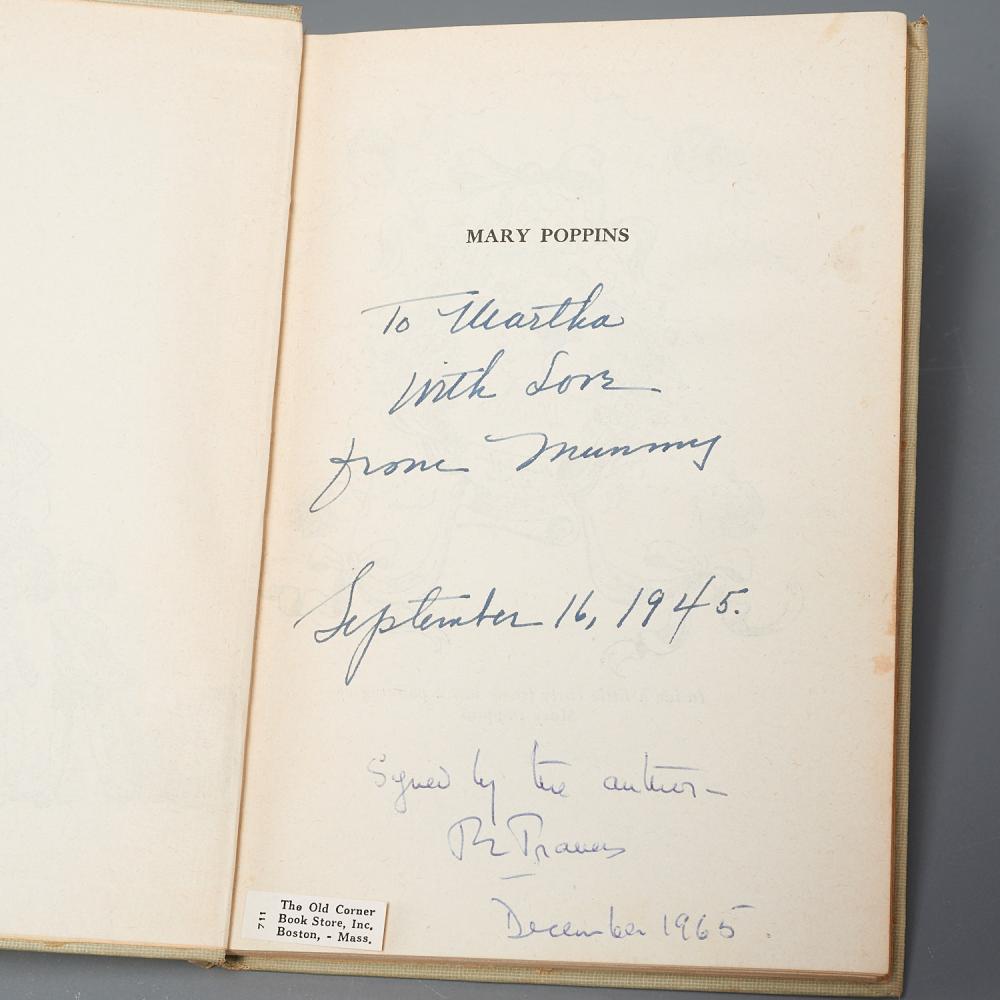 MARY POPPINS
To Martha
With Love
from Mummy
September 16, 1945.
Signed by the author—
P L Travers
December 1965
711
The Old Corner
Book Store, Inc.
Boston, - Mass.